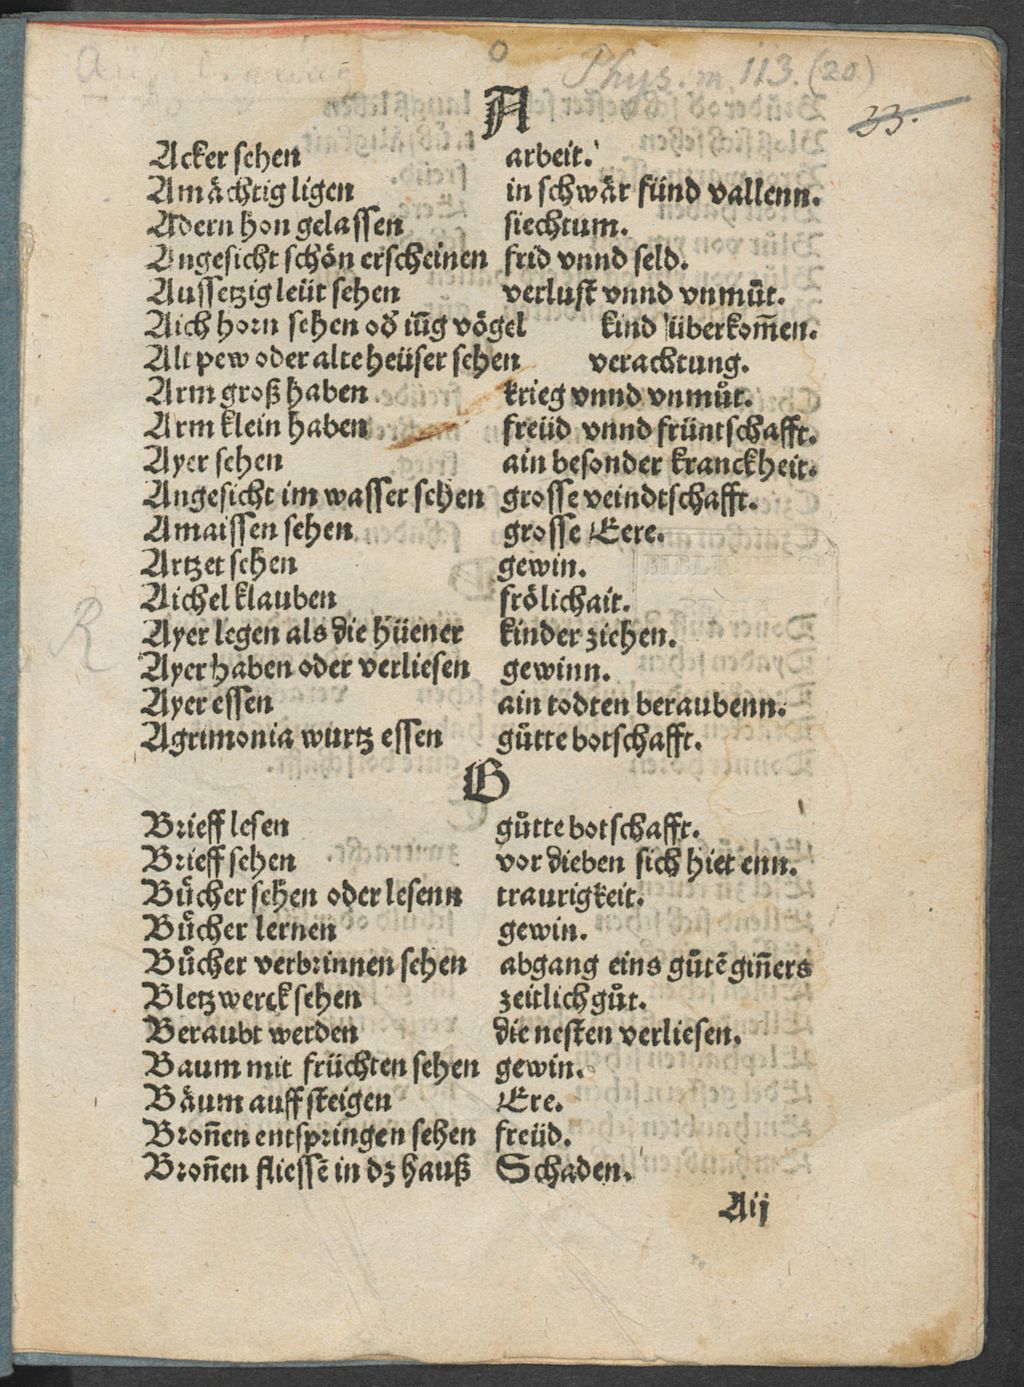 Phys. m. 113. (20)
33.
A
Acker sehen arbeit.
Amächtig ligen in schwär sünd vallenn.
Adern hon gelassen siechtum.
Angesicht schön erscheinen frid vnnd seld.
Aussetzig leüt sehen verlust vnnd vnmůt.
Aich horn sehen od' iūg vögel kind überkom̄en.
Alt pew oder alte heüser sehen verachtung.
Arm groß haben krieg vnnd vnmůt.
Arm klein haben freüd vnnd früntschafft.
Ayer sehen ain besonder kranckheit.
Angesicht im wasser sehen grosse veindtschafft.
Amaissen sehen grosse Eere.
Artzet sehen gewin.
Aichel klauben frölichait.
Ayer legen als die hüener kinder ziehen.
Ayer haben oder verliesen gewinn.
Ayer essen ain todten beraubenn.
Agrimonia wurtz essen gůtte botschafft.
B
Brieff lesen gůtte botschafft.
Brieff sehen vor dieben sich hiet enn.
Bücher sehen oder lesenn traurigkeit.
Bücher lernen gewin.
Bücher verbrinnen sehen abgang eins gůtē gin̄ers
Bletzwerck sehen zeitlich gůt.
Beraubt werden die nesten verliesen.
Baum mit früchten sehen gewin.
Bäum auff steigen Ere.
Bron̄en entspringen sehen freüd.
Bron̄en fliessē in dz hauß Schaden.
Aij
R